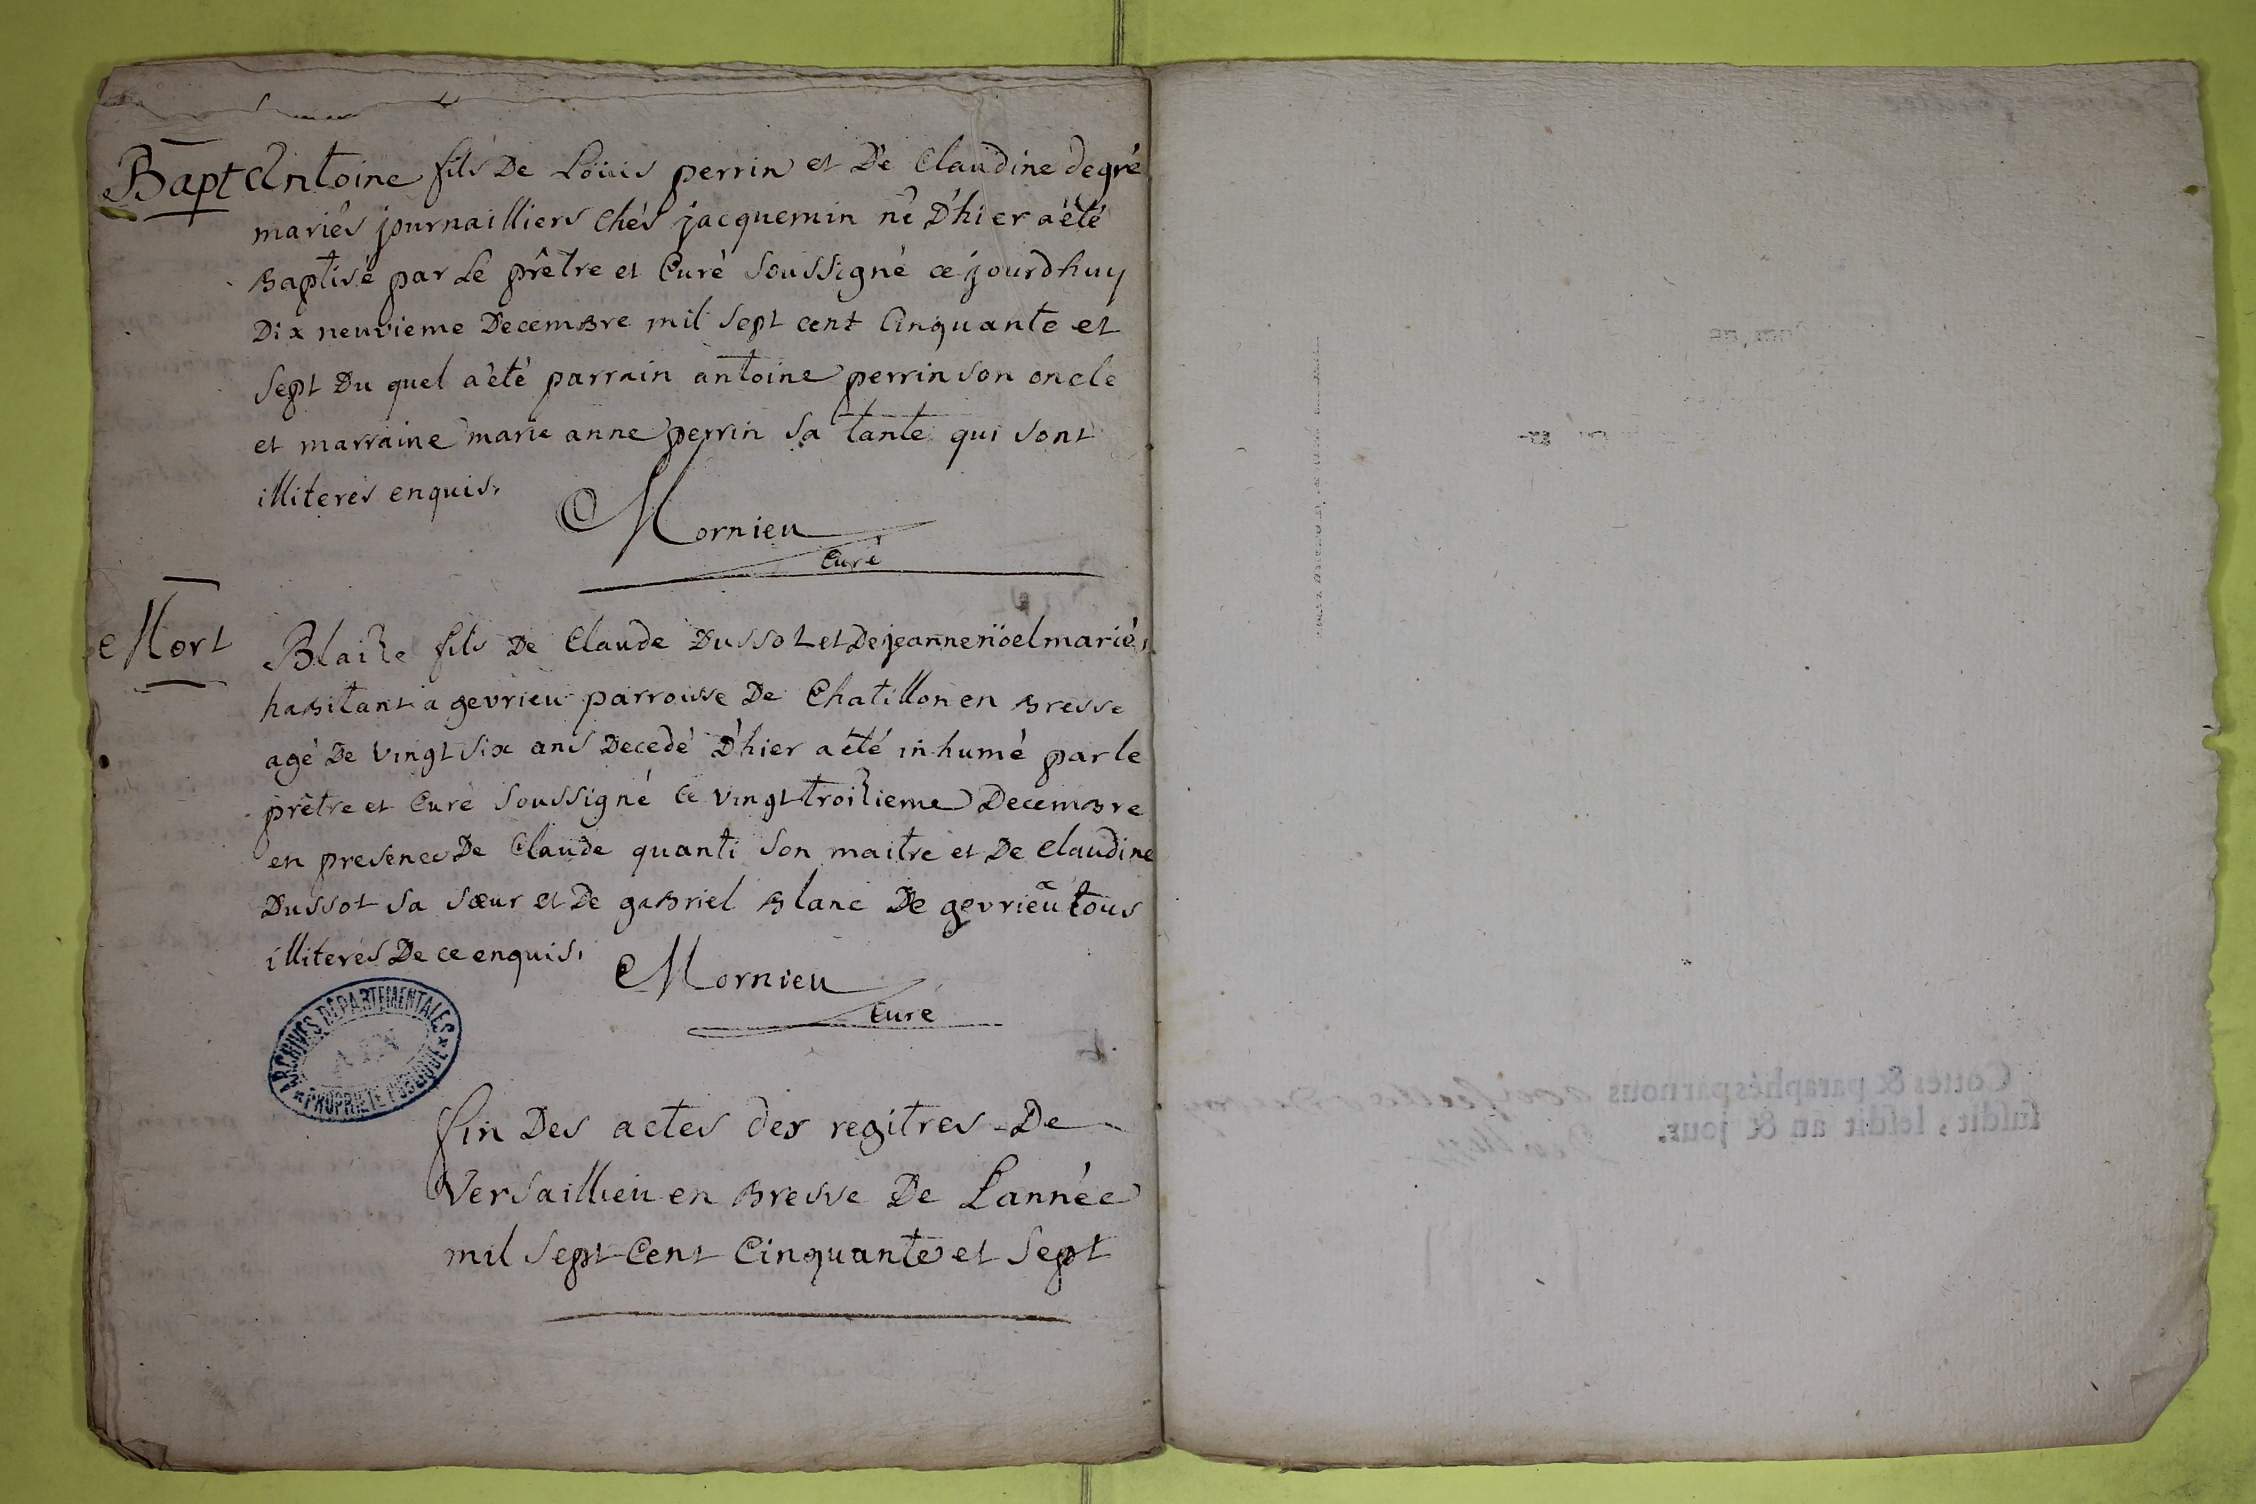 Bapt Antoine fils De Loüis perrin et De Claudine degré
mariés journailliers chés jacquemin né D'hier a été
Baptisé par Le prêtre et Curé Soussigné ce jourdhuy
Dix neuvieme Decembre mil Sept cent Cinquante et
Sept Du quel a été parrain antoine perrin son oncle
et marraine marie anne perrin Sa tante qui sont
illiterés enquis.
Mornieu
Curé
Mort Blaise fils De Claude Dussot et De jeanne nöel mariés
habitant a gevrieu parroisse De Chatillon en Bresse
agé De vingt Six ans Decedé D'hier a été inhumé par le
prêtre et Curé Soussigné Ce vingt troisieme Decembre
en presence De Claude quanti Son maitre et De Claudine
Dussot sa sœur et De gabriel Blanc De gevrieu tous
illiterés De ce enquis.
Mornieu
Curé
ARCHIVES DÉPARTEMENTALES
AIN
PROPRIÉTÉ PUBLIQUE
fin Des actes des regitres De
Versaillieu en Bresse De Lannée
mil Sept Cent Cinquante et Sept
Cottés & paraphés par nous
susdit, lesdit an & jour.